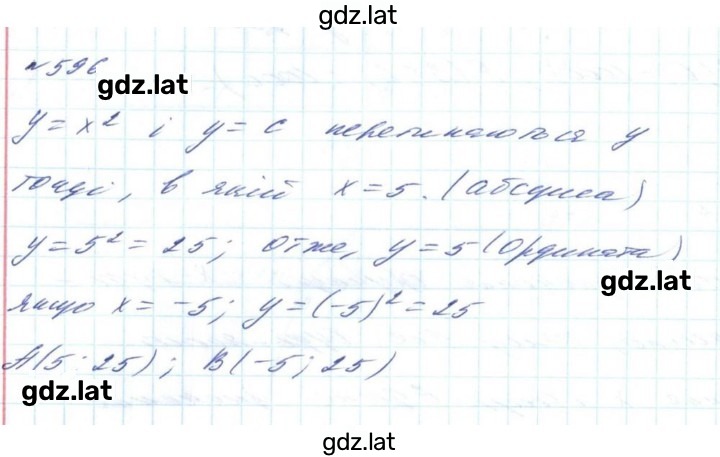 gdz.lat
№ 596
gdz.lat
y = x² і y = c перетинаються у
точці, в якій x = 5. (абсциса)
y = 5² = 25; отже, y = 5 (ордината)
gdz.lat
якщо x = -5; y = (-5)² = 25
A(5; 25); B(-5; 25)
gdz.lat
gdz.lat